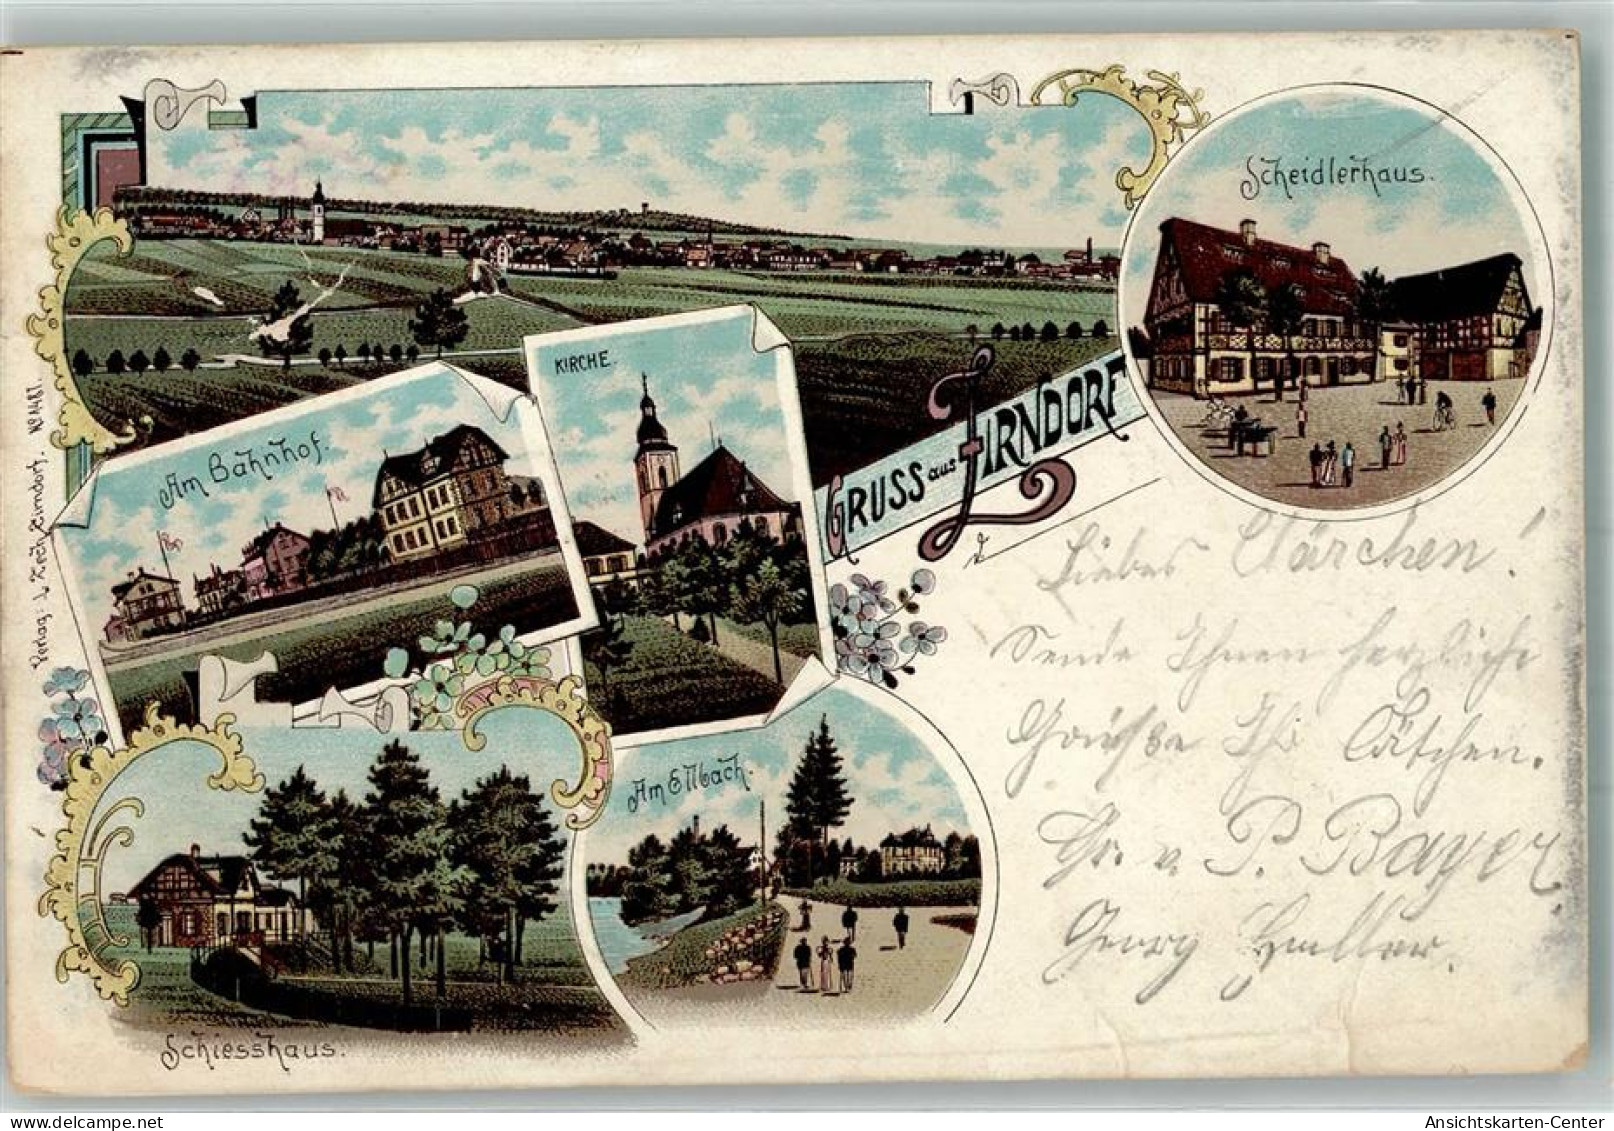 Scheidlerhaus.
KIRCHE.
Am Bahnhof.
GRUSS aus ZIRNDORF
Am Ellbach.
Schiesshaus.
Verlag: L. Zech, Zirndorf. No 4487.
Liebes Clärchen!
Sende Ihnen herzliche
Grüße Ihr
Gr. v. P. Bayer
Georg
Ansichtskarten-Center